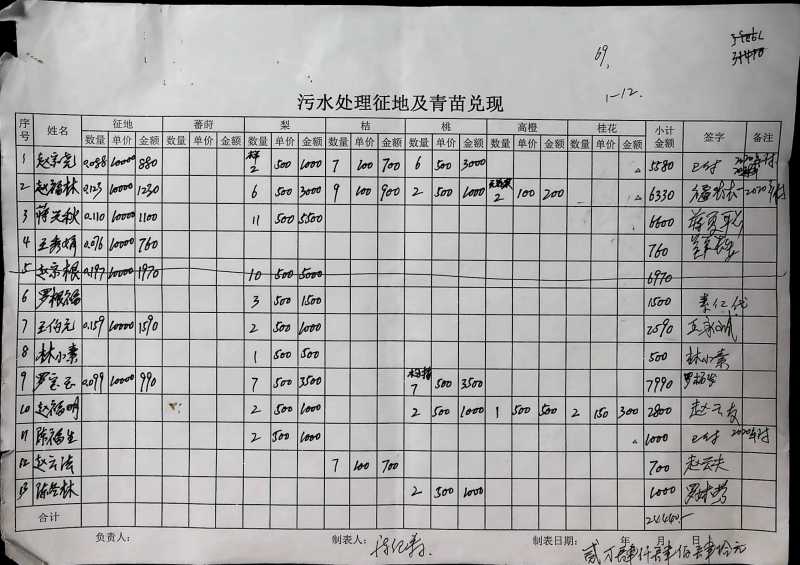 69,
1-12.
污水处理征地及青苗兑现
序号 姓名 征地 蕃莳 梨 桔 桃 高橙 桂花 小计金额 签字 备注
数量 单价 金额 数量 单价 金额 数量 单价 金额 数量 单价 金额 数量 单价 金额 数量 单价 金额 数量 单价 金额
1 赵宗尧 0.088 10000 880 2 500 1000 7 100 700 6 500 3000 5580 已付 2020年付
2 赵福林 0.123 10000 1230 6 500 3000 9 100 900 2 500 1000 2 100 200 6330 2020年付
3 蒋先秋 0.110 10000 1100 11 500 5500 6600
4 王秀娟 0.076 10000 760 760
5 赵宗根 0.197 10000 1970 10 500 5000 6970
6 罗根福 3 500 1500 1500
7 王伯元 0.159 10000 1590 2 500 1000 2590
8 林小素 1 500 500 500 林小素
9 罗宝玉 0.099 10000 990 7 500 3500 7 500 3500 7990
10 赵福明 2 500 1000 2 500 1000 1 500 500 2 150 300 2800 赵云友
11 陈福生 2 500 1000 1000 已付 2020年付
12 赵云法 7 100 700 700 赵云夫
13 陈冬林 2 500 1000 1000
合计 24440.-
负责人： 制表人： 制表日期： 年 月 日
贰万肆仟肆佰肆拾元